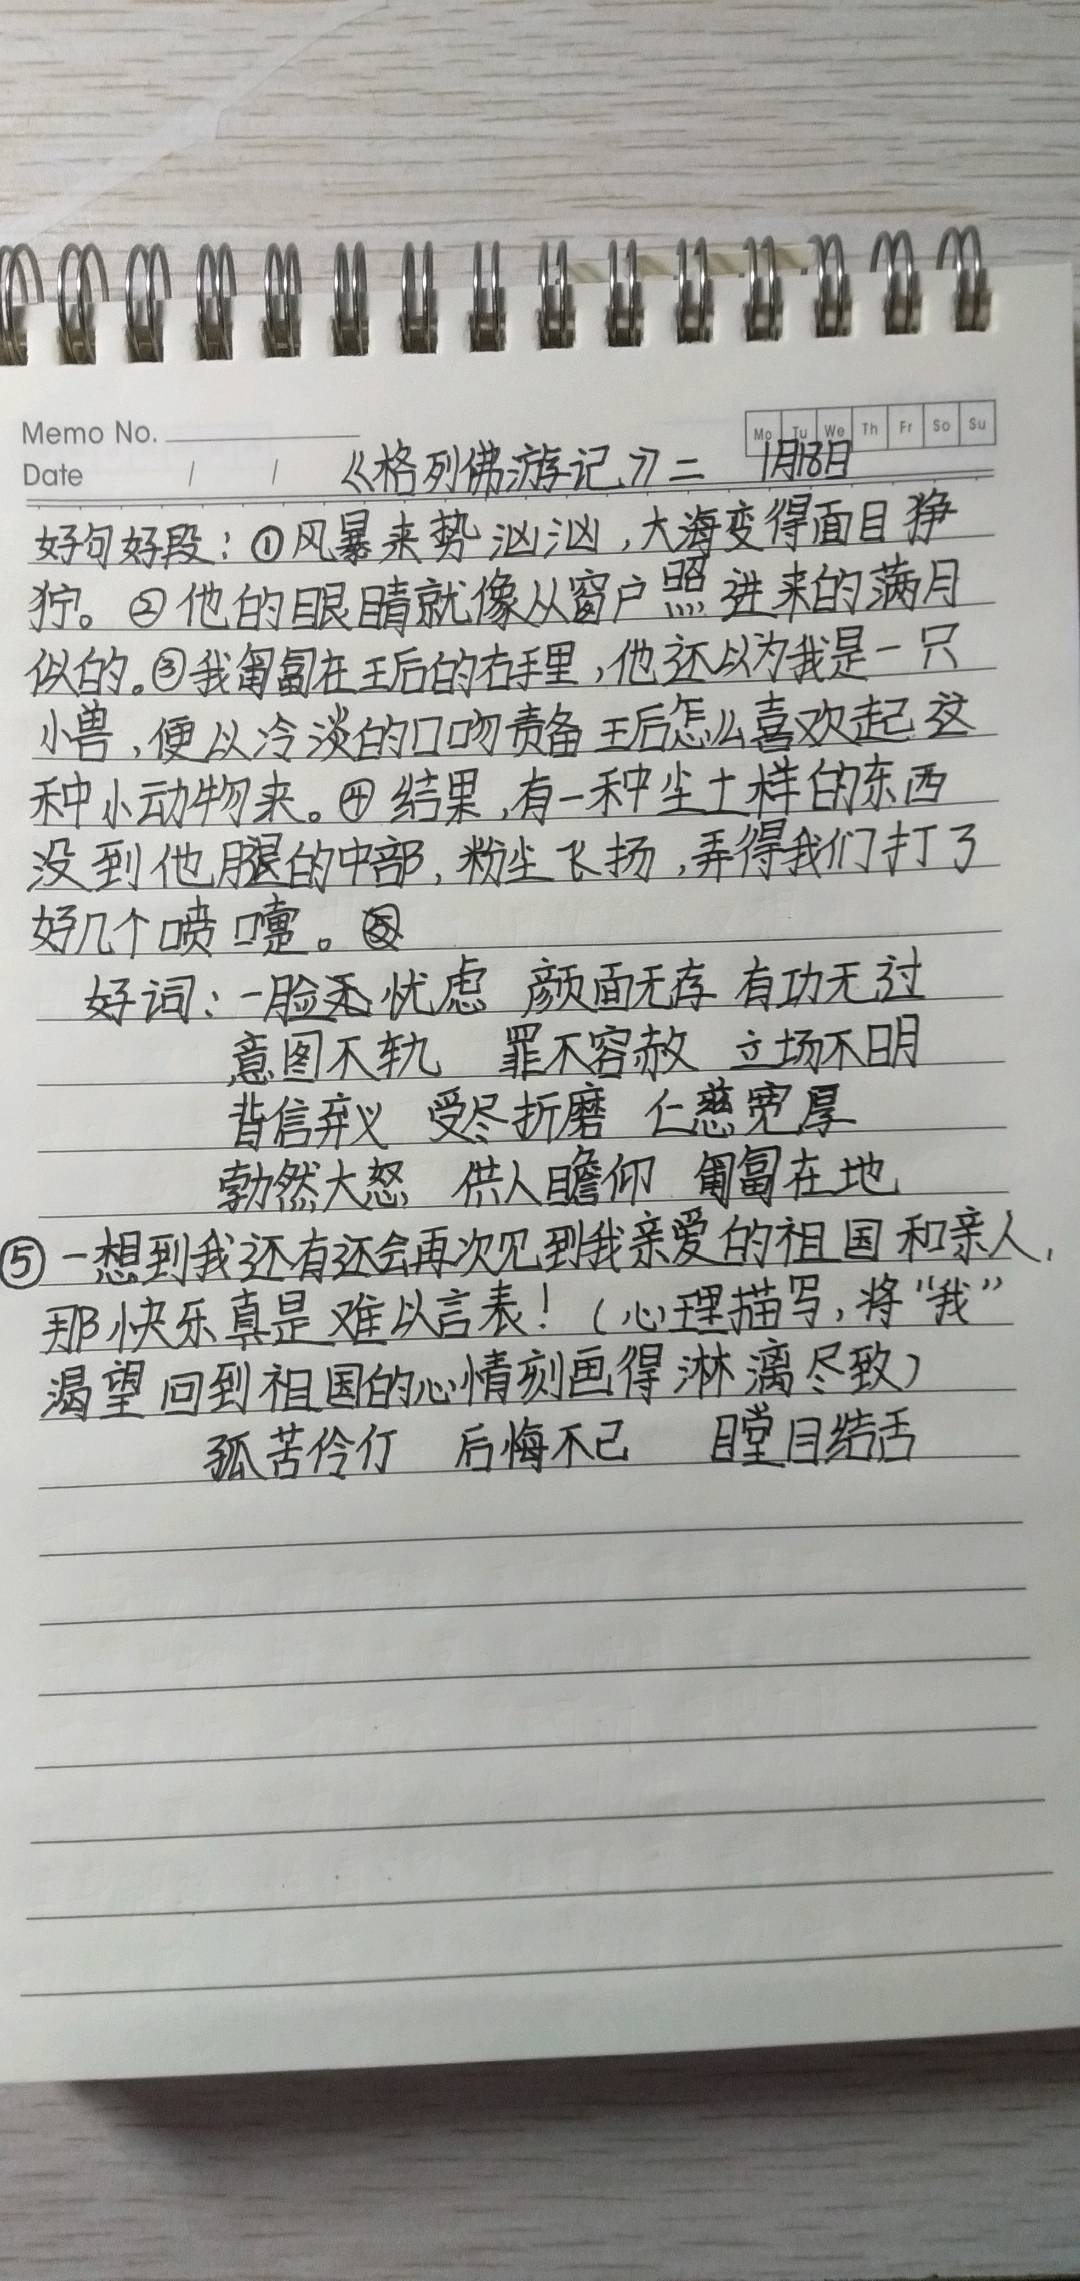 Memo No.
Mo Tu We Th Fr So Su
Date / / 《格列佛游记》二 1月18日
好句好段：①风暴来势汹汹，大海变得面目狰
狞。②他的眼睛就像从窗户照进来的满月
似的。③我匍匐在王后的右手里，他还以为我是一只
小兽，便以冷淡的口吻责备王后怎么喜欢起这
种小动物来。④结果，有一种尘土样的东西
没到他腿的中部，粉尘飞扬，弄得我们打了
好几个喷嚏。⑤
好词：一脸无忧虑 颜面无存 有功无过
意图不轨 罪不容赦 立场不明
背信弃义 受尽折磨 仁慈宽厚
勃然大怒 供人瞻仰 匍匐在地
⑤一想到我还有还会再次见到我亲爱的祖国和亲人，
那快乐真是难以言表！（心理描写，将“我”
渴望回到祖国的心情刻画得淋漓尽致）
孤苦伶仃 后悔不已 瞠目结舌